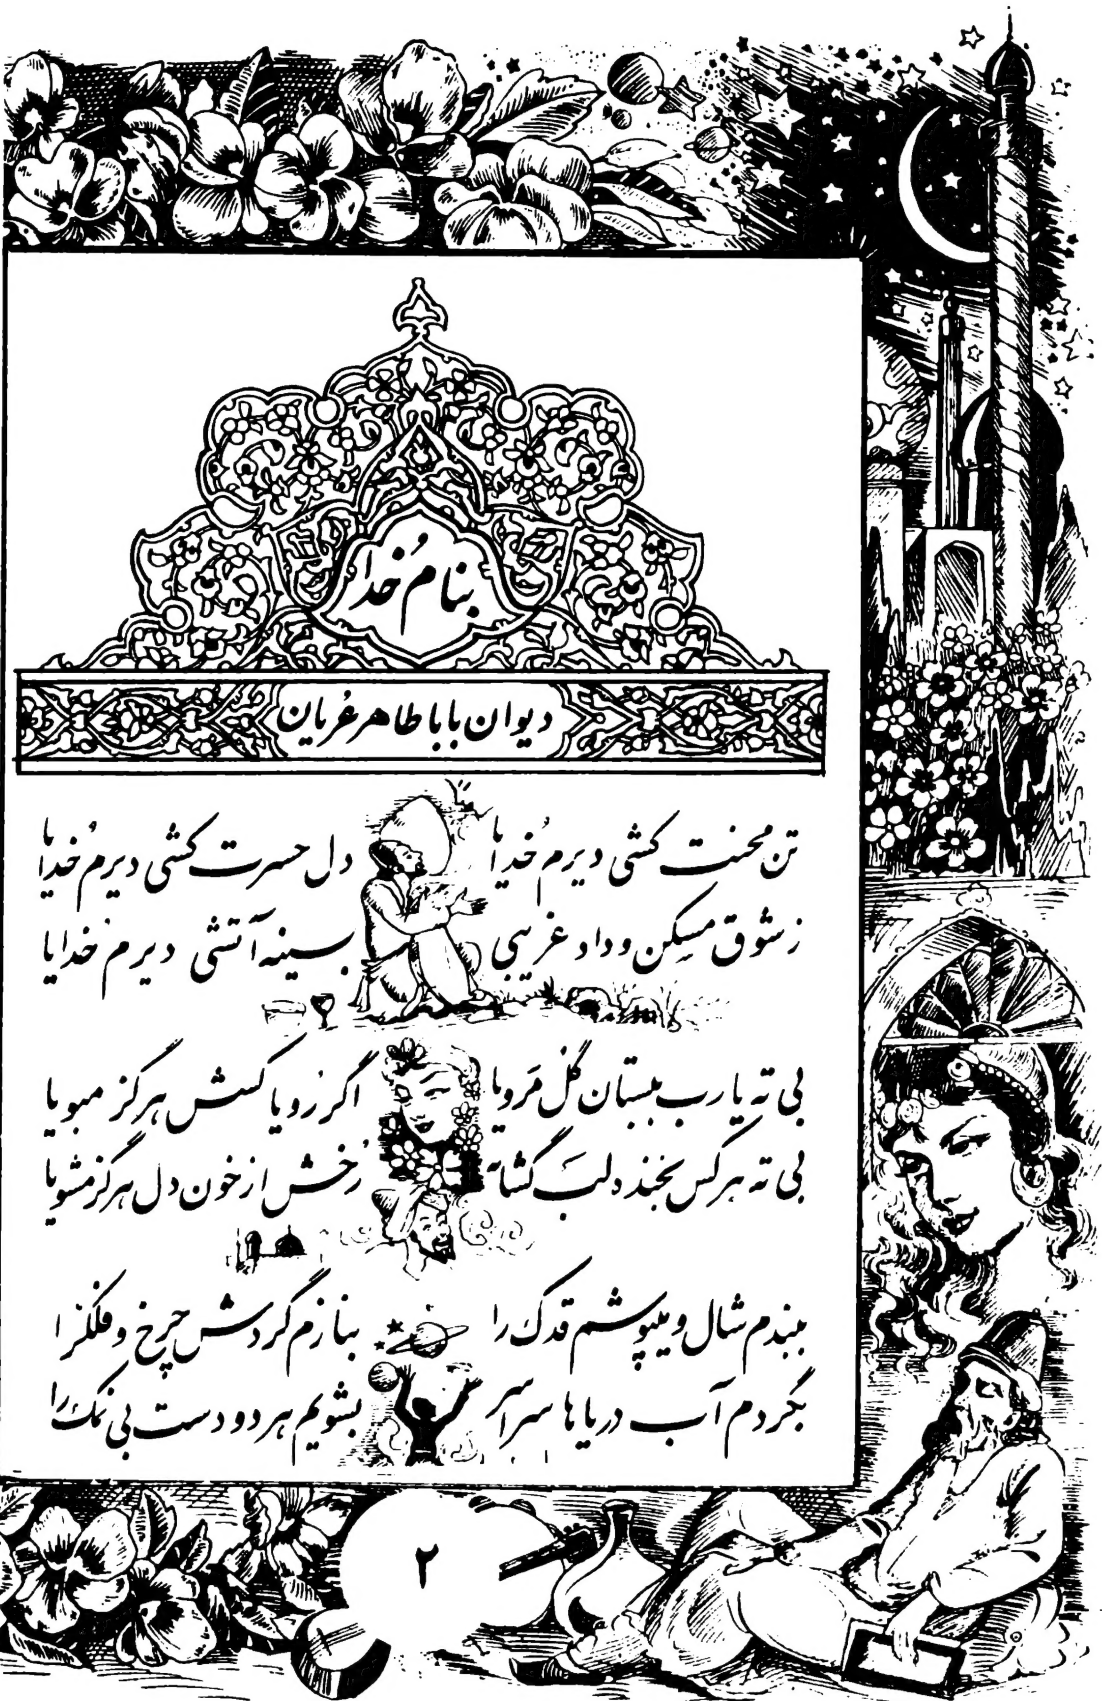 بنام خُدا
دیوان باباطاهر عُریان
تن محنت کشی دیرم خُدایا دل حسرت کشی دیرم خُدایا
زشوق مسکن و داد غریبی بسینه آتشی دیرم خدایا
بی ته یارب ببستان گل مَرویا اگر رویا کسش هرگز مبویا
بی ته هر کس بخنده لب گشاته رُخش از خون دل هرگز مشویا
ببندم شال و میپوشم قدک را بنازم گردش چرخ و فلک را
بگردم آب دریاها سراسر بشویم هر دو دست بی نمک را
۲